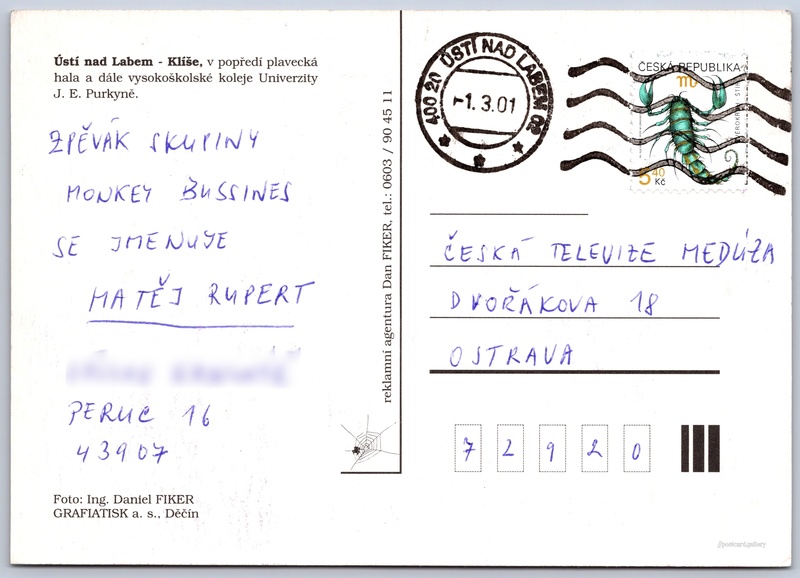 Ústí nad Labem - Klíše, v popředí plavecká
hala a dále vysokoškolské koleje Univerzity
J. E. Purkyně.
ZPĚVÁK SKUPINY
MONKEY BUSSINES
SE JMENUJE
MATĚJ RUPERT
PERUC 16
43907
Foto: Ing. Daniel FIKER
GRAFIATISK a. s., Děčín
reklamní agentura Dan FIKER, tel.: 0603 / 90 45 11
400 20 ÚSTÍ NAD LABEM 02
-1.3.01
ČESKÁ REPUBLIKA
5,40
Kč
ČESKÁ TELEVIZE MEDÚZA
DVOŘÁKOVA 18
OSTRAVA
7 2 9 2 0
//postcard.gallery